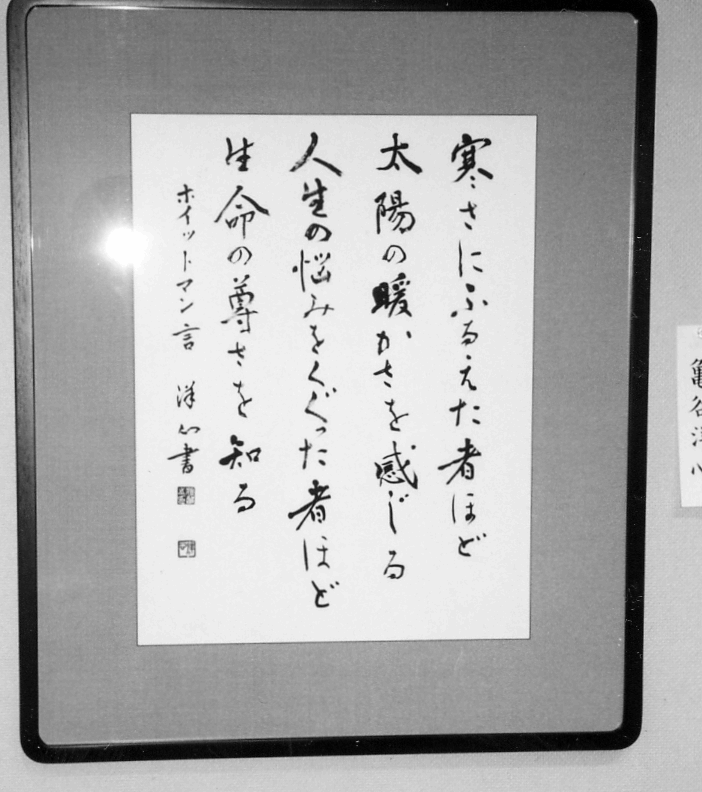 寒さにふるえた者ほど
太陽の暖かさを感じる
人生の悩みをくぐった者ほど
生命の尊さを知る
ホイットマン言 洋心書
亀谷洋心